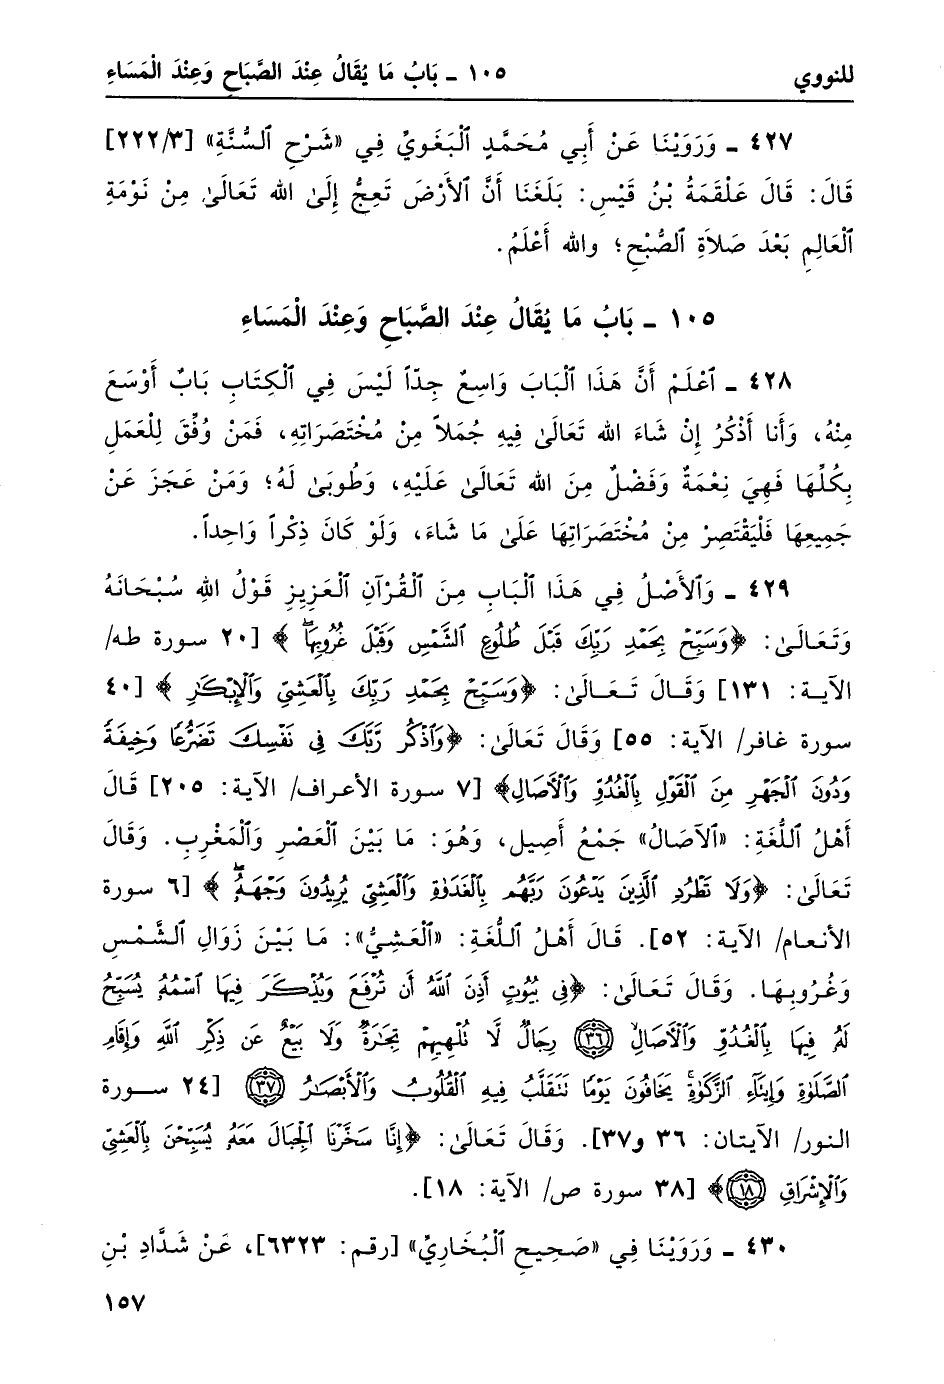 للنووي ١٠٥ ـ بَابُ مَا يُقَالُ عِنْدَ الصَّبَاحِ وَعِنْدَ الْمَسَاءِ
٤٢٧ ـ وَرَوَيْنَا عَنْ أَبِي مُحَمَّدٍ ٱلْبَغَوِيِّ فِي «شَرْحِ ٱلسُّنَّةِ» [٢٢٢/٣]
قَالَ: قَالَ عَلْقَمَةُ بْنُ قَيْسٍ: بَلَغَنَا أَنَّ ٱلأَرْضَ تَعِجُّ إِلَىٰ الله تَعَالَىٰ مِنْ نَوْمَةِ
ٱلْعَالِمِ بَعْدَ صَلاَةِ ٱلصُّبْحِ؛ والله أَعْلَمُ.
١٠٥ ـ بَابُ مَا يُقَالُ عِنْدَ الصَّبَاحِ وَعِنْدَ الْمَسَاءِ
٤٢٨ ـ ٱعْلَمْ أَنَّ هَذَا ٱلْبَابَ وَاسِعٌ جِدّاً لَيْسَ فِي ٱلْكِتَابِ بَابٌ أَوْسَعَ
مِنْهُ، وَأَنا أَذْكُرُ إِنْ شَاءَ الله تَعَالَىٰ فِيهِ جُمَلاً مِنْ مُخْتَصَرَاتِهِ، فَمَنْ وُفِّقَ لِلْعَمَلِ
بِكُلِّهَا فَهِيَ نِعْمَةٌ وَفَضْلٌ مِنَ الله تَعَالَىٰ عَلَيْهِ، وَطُوبَىٰ لَهُ؛ وَمَنْ عَجَزَ عَنْ
جَمِيعِهَا فَلْيَقْتَصِرْ مِنْ مُخْتَصَرَاتِهَا عَلَىٰ مَا شَاءَ، وَلَوْ كَانَ ذِكْراً وَاحِداً.
٤٢٩ ـ وَٱلأَصْلُ فِي هَذَا ٱلْبَابِ مِنَ ٱلْقُرْآنِ ٱلْعَزِيزِ قَوْلُ اللهِ سُبْحَانَهُ
وَتَعَالَىٰ: ﴿وَسَبِّحْ بِحَمْدِ رَبِّكَ قَبْلَ طُلُوعِ ٱلشَّمْسِ وَقَبْلَ غُرُوبِهَا ۖ﴾ [٢٠ سورة طه/
الآية: ١٣١] وَقَالَ تَعَالَىٰ: ﴿وَسَبِّحْ بِحَمْدِ رَبِّكَ بِٱلْعَشِيِّ وَٱلْإِبْكَٰرِ﴾ [٤٠
سورة غافر/ الآية: ٥٥] وَقَالَ تَعَالَىٰ: ﴿وَٱذْكُر رَّبَّكَ فِي نَفْسِكَ تَضَرُّعًا وَخِيفَةً
وَدُونَ ٱلْجَهْرِ مِنَ ٱلْقَوْلِ بِٱلْغُدُوِّ وَٱلْآصَالِ﴾ [٧ سورة الأعراف/ الآية: ٢٠٥] قَالَ
أَهْلُ ٱللُّغَةِ: «ٱلآصَالُ» جَمْعُ أَصِيلٍ، وَهُوَ: مَا بَيْنَ ٱلْعَصْرِ وَٱلْمَغْرِبِ. وَقَالَ
تَعَالَىٰ: ﴿وَلَا تَطْرُدِ ٱلَّذِينَ يَدْعُونَ رَبَّهُم بِٱلْغَدَوٰةِ وَٱلْعَشِيِّ يُرِيدُونَ وَجْهَهُۥ ۖ﴾ [٦ سورة
الأنعام/ الآية: ٥٢]. قَالَ أَهْلُ ٱللُّغَةِ: «ٱلْعَشِيُّ»: مَا بَيْنَ زَوَالِ ٱلشَّمْسِ
وَغُرُوبِهَا. وَقَالَ تَعَالَىٰ: ﴿فِي بُيُوتٍ أَذِنَ ٱللَّهُ أَن تُرْفَعَ وَيُذْكَرَ فِيهَا ٱسْمُهُۥ يُسَبِّحُ
لَهُۥ فِيهَا بِٱلْغُدُوِّ وَٱلْآصَالِ ﴿٣٦﴾ رِجَالٌ لَّا تُلْهِيهِمْ تِجَٰرَةٌ وَلَا بَيْعٌ عَن ذِكْرِ ٱللَّهِ وَإِقَامِ
ٱلصَّلَوٰةِ وَإِيتَآءِ ٱلزَّكَوٰةِ ۙ يَخَافُونَ يَوْمًا تَتَقَلَّبُ فِيهِ ٱلْقُلُوبُ وَٱلْأَبْصَٰرُ ﴿٣٧﴾ [٢٤ سورة
النور/ الآيتان: ٣٦ و٣٧]. وَقَالَ تَعَالَىٰ: ﴿إِنَّا سَخَّرْنَا ٱلْجِبَالَ مَعَهُۥ يُسَبِّحْنَ بِٱلْعَشِيِّ
وَٱلْإِشْرَاقِ ﴿١٨﴾﴾ [٣٨ سورة ص/ الآية: ١٨].
٤٣٠ ـ وَرَوَيْنَا فِي «صَحِيحِ ٱلْبُخَارِيِّ» [رقم: ٦٣٢٣]، عَنْ شَدَّادِ بْنِ
١٥٧